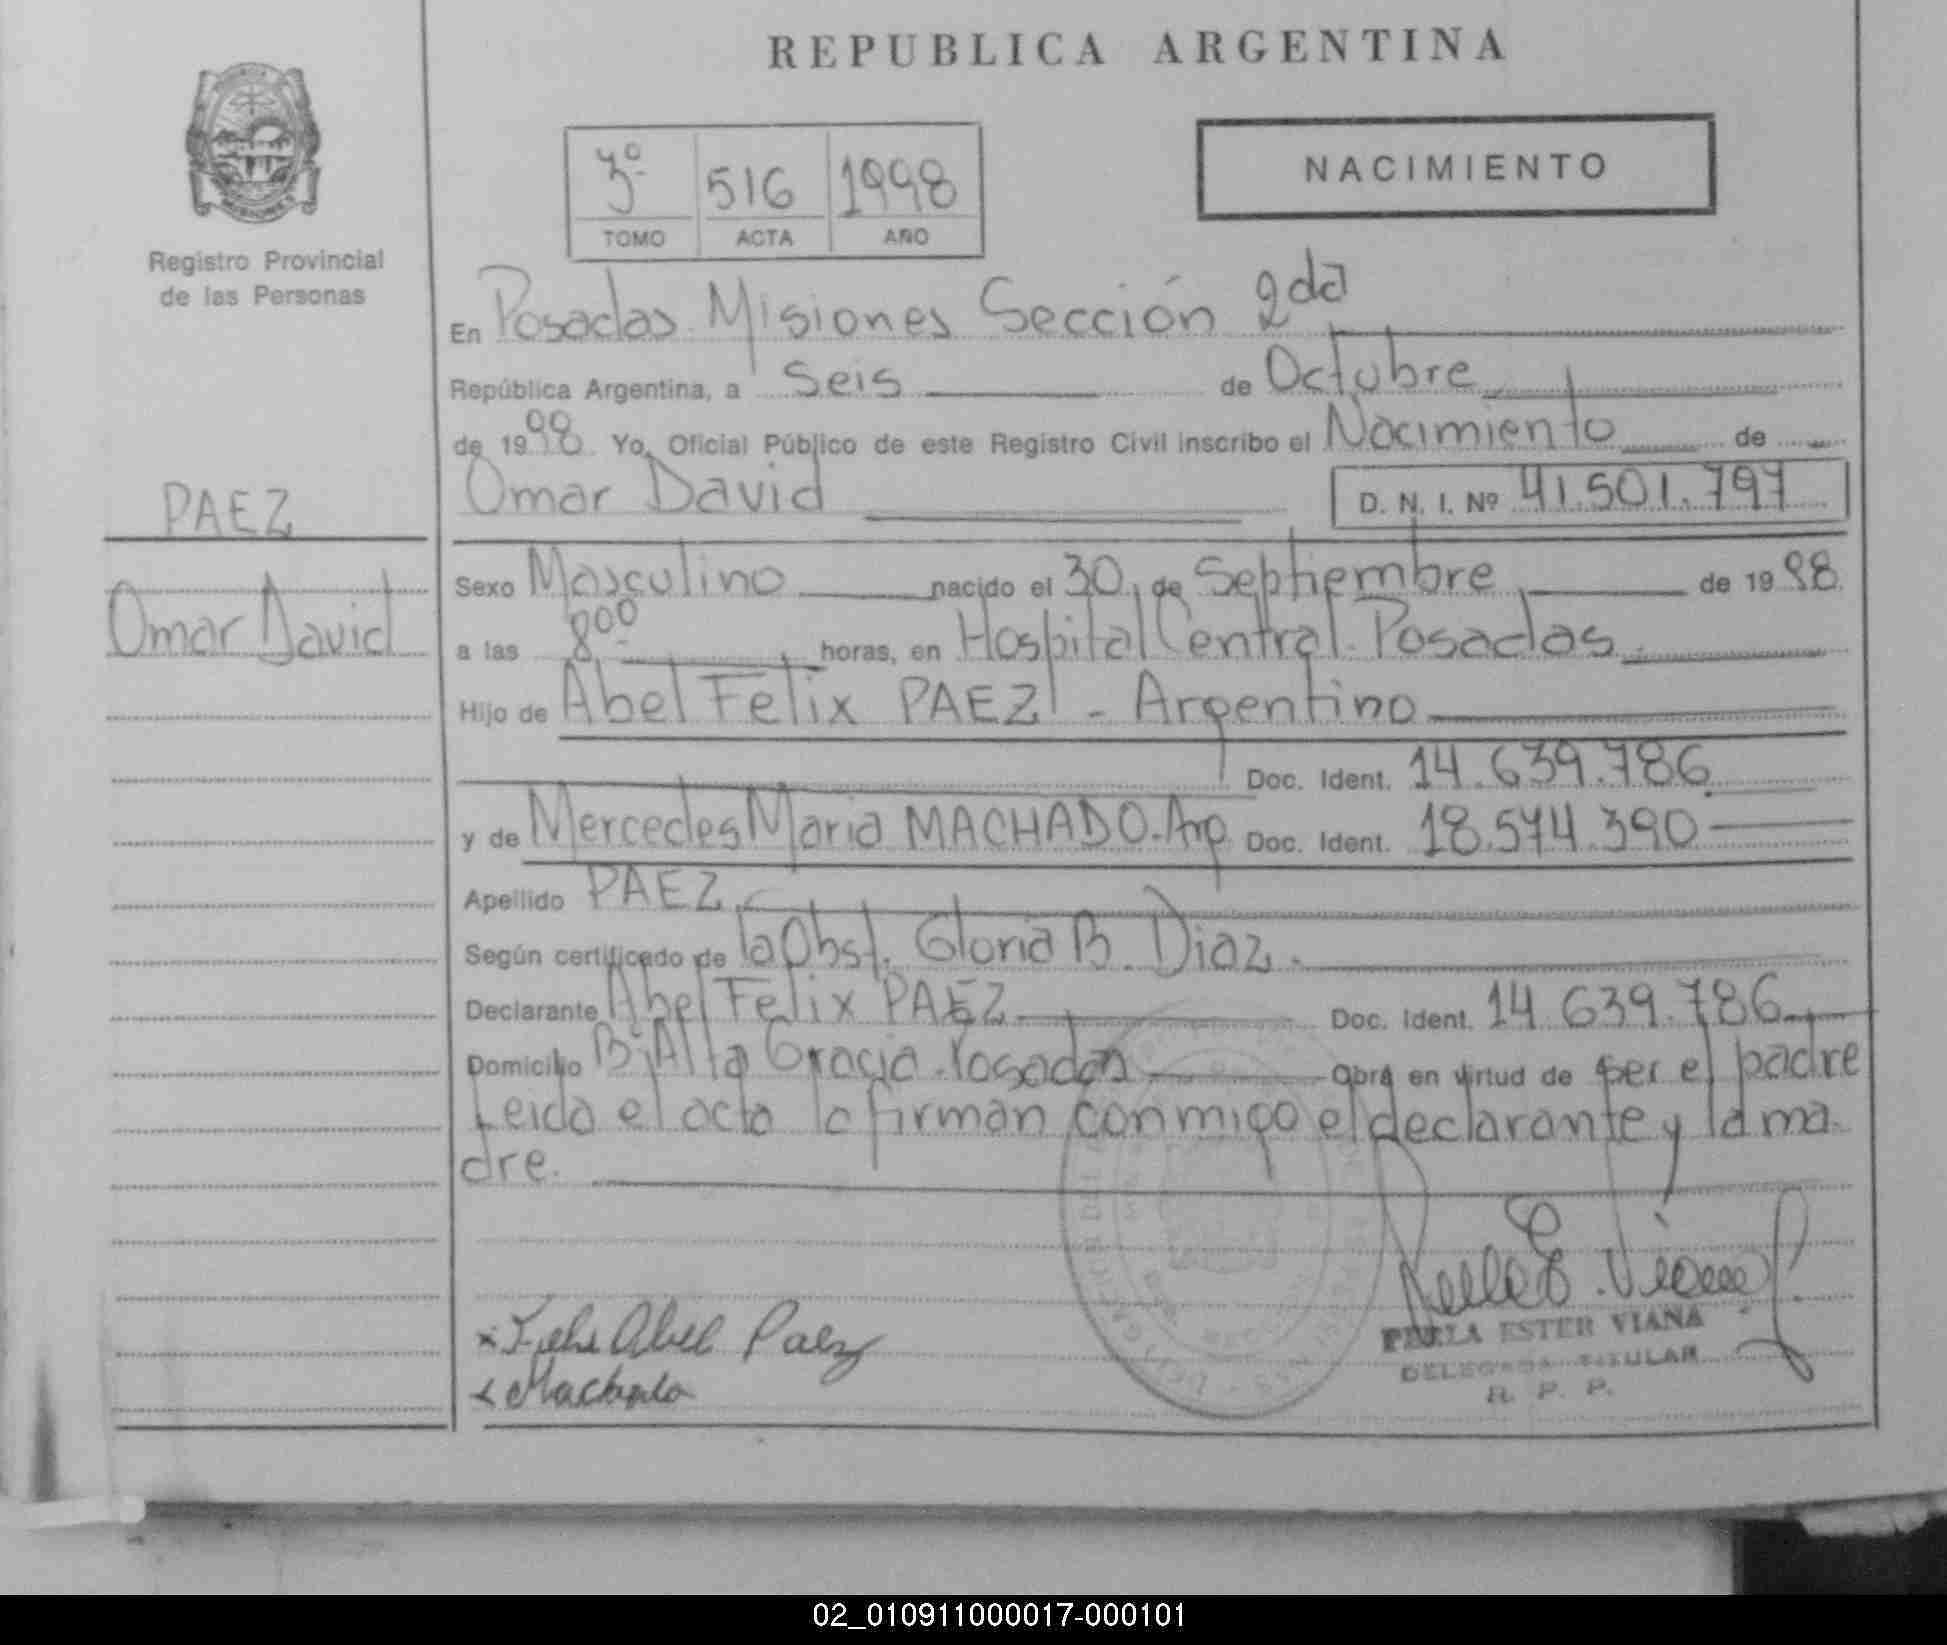 REPUBLICA ARGENTINA
NACIMIENTO
3º 516 1998
TOMO ACTA AÑO
MISIONES
Registro Provincial
de las Personas
En Posadas Misiones Sección 2da
República Argentina, a Seis de Octubre
de 1998 Yo, Oficial Público de este Registro Civil inscribo el Nacimiento de
Omar David D. N. I. Nº 41.501.797
PAEZ
Omar David
Sexo Masculino nacido el 30 de Septiembre de 1998
a las 8 00 horas, en Hospital Central. Posadas
Hijo de Abel Felix PAEZ - Argentino
Doc. Ident. 14.639.786
y de Mercedes Maria MACHADO-Arg Doc. Ident. 18.574.390
Apellido PAEZ
Según certificado de la Obst. Gloria B. Diaz
Declarante Abel Felix PAEZ Doc. Ident. 14.639.786
Domicilio Bº Alta Gracia. Posadas Obra en virtud de ser el padre
Leida el acta la firman conmigo el declarante y la ma
dre.
x Felix Abel Paez
x Machado
PERLA ESTER VIANA
DELEGADA TITULAR
R. P. P.
02_010911000017-000101